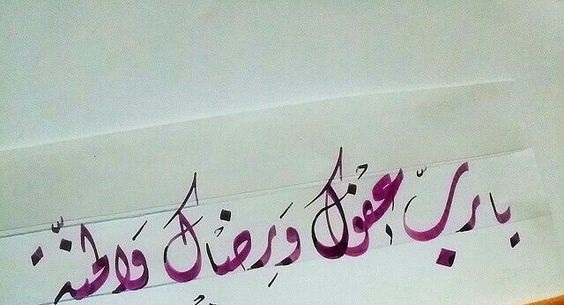 يا ربّ عفوك وَرِضاك وَالجنّة